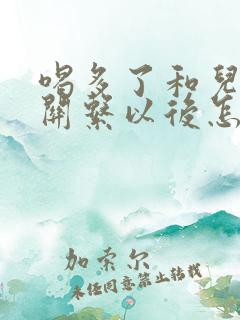 喝多了和兒
關繫以後怎
加索尔
未经同意禁止转载